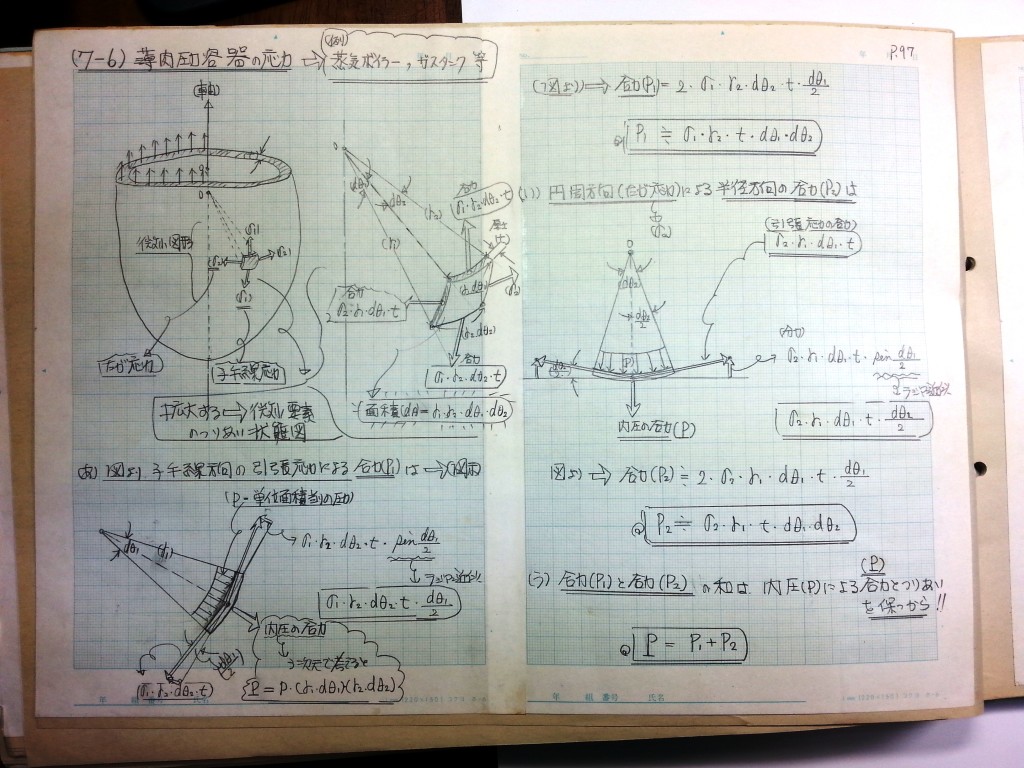 (7-6) 薄肉圧力容器の応力 → (例) 蒸気ボイラー, ガスタンク 等
(軸)
O
(σ1)
(σ2)
(σ2)
(σ1)
微小図形
(たが応力)
子午線応力
拡大する → 微小要素
のつりあい状態図
O
dθ1
dθ2
(r2)
(r1)
合力
σ1・r2・dθ2・t
厚さ
(t)
(σ2)
合力
σ2・r1・dθ1・t
(r1・dθ1)
(r2・dθ2)
合力
σ1・r2・dθ2・t
面積(dA = r1・r2・dθ1・dθ2)
(あ) 図より, 子午線方向の引張応力による合力(P1)は → (図示)
(P = 単位面積当の圧力)
dθ1
(r1)
σ1・r2・dθ2・t・sin dθ1/2
ラジアン近似
σ1・r2・dθ2・t・dθ1/2
内圧の合力
3次元で考えると
P = P・(r1・dθ1)(r2・dθ2)
(dθ1/2)
(σ1・r2・dθ2・t)
年 組 番号 氏名
P.97
(図より) → 合力(P1) = 2・σ1・r2・dθ2・t・dθ1/2
P1 ≒ σ1・r2・t・dθ1・dθ2
(い) 円周方向(たが応力)による半径方向の合力(P2)は
(σ2)
(引張応力の合力)
σ2・r1・dθ1・t
O
(dθ2)
dθ2/2
(P)
dθ2/2
(合力)
σ2・r1・dθ1・t・sin dθ2/2
ラジアン近似
σ2・r1・dθ1・t・dθ2/2
内圧の合力(P)
図より → 合力(P2) ≒ 2・σ2・r1・dθ1・t・dθ2/2
P2 ≒ σ2・r1・t・dθ1・dθ2
(う) 合力(P1)と合力(P2)の和は, 内圧(P)による合力とつりあい
(P)
を保つから!!
P = P1 + P2
年 組 番号 氏名